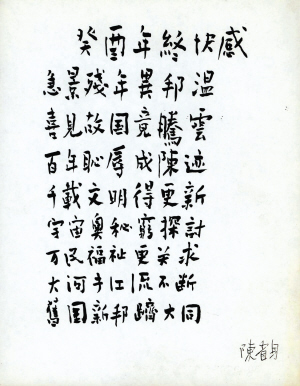 癸酉年終快感
急景殘年異邦溫
喜見故国竟騰雲
百年恥辱成陳迹
千載文明得更新
宇宙奧秘窮探討
万民福祉更美求
大河丰江流不断
舊国新邦躋大同
陳省身